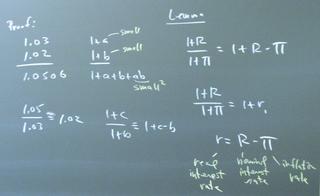 Proof:
1.03
1.02
1.0506
1+a small
1+b small
1+a+b+ab
small²
1.05/1.03 ≅ 1.02
1+c/1+b ≅ 1+c-b
Lemma
1+R/1+π = 1+R-π
1+R/1+π = 1+r,
r = R-π
real interest rate
nominal interest rate
inflation rate